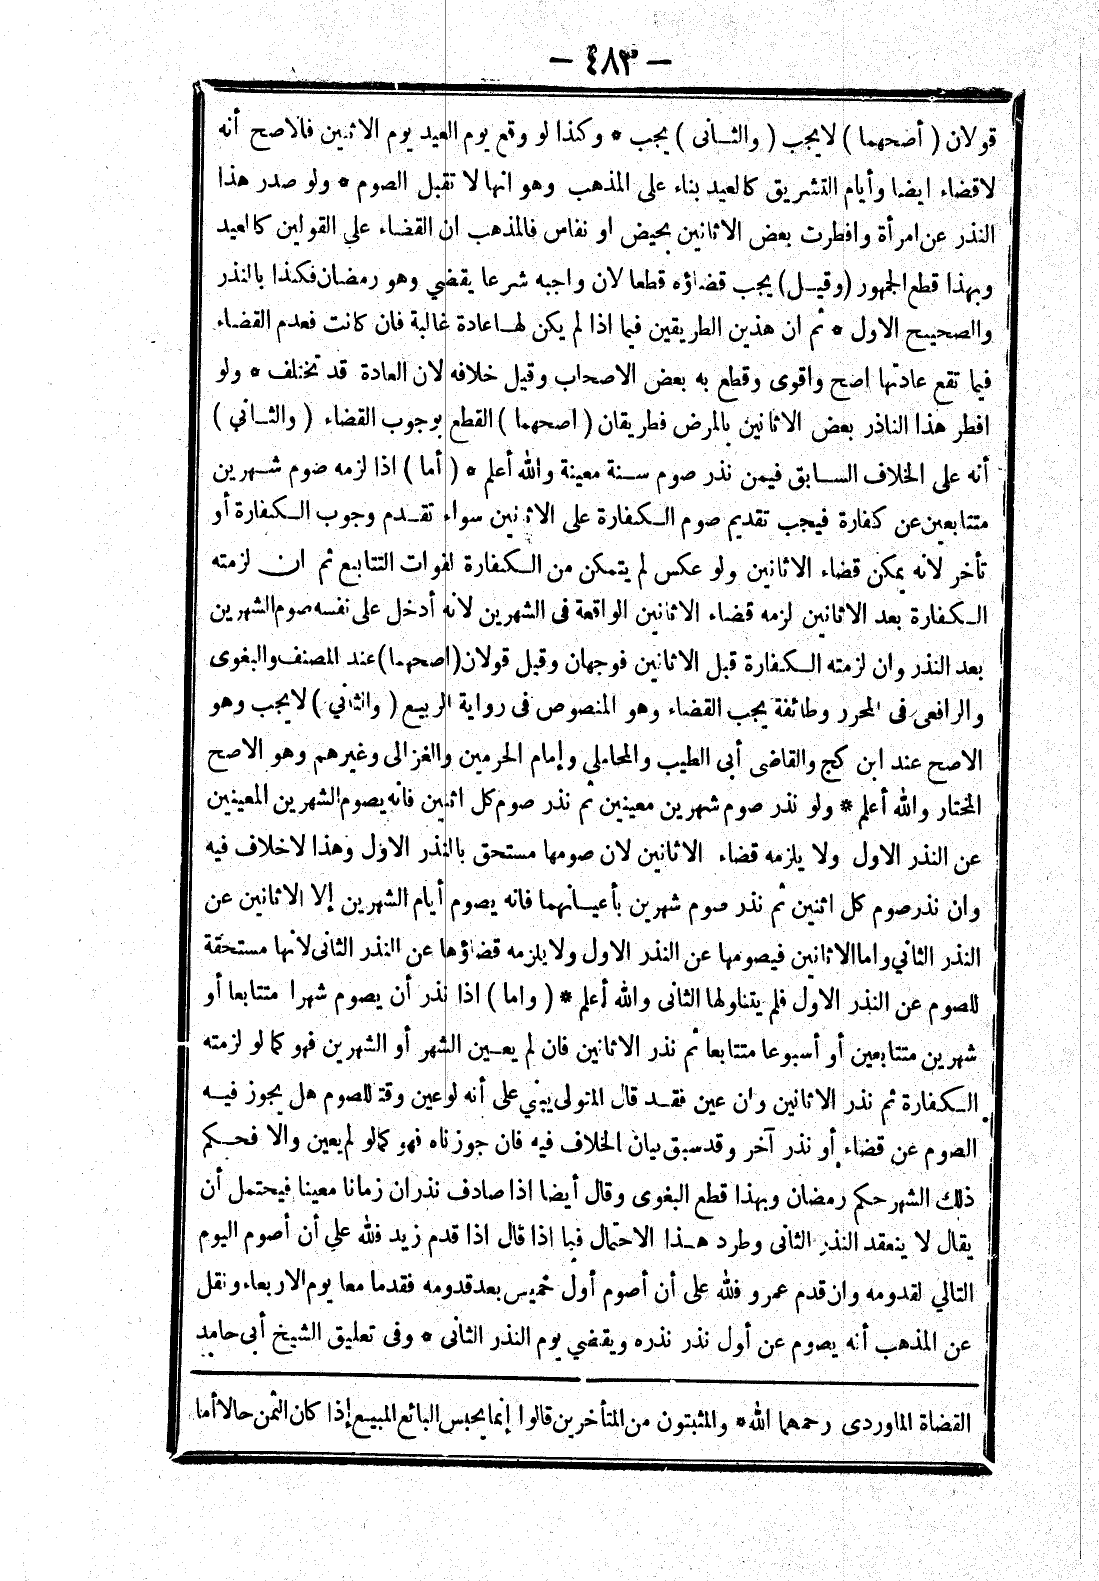 — ٤٨٣ —
قولان ( أصحهما ) لايجب ( والثانى ) يجب * وكذا لو وقع يوم العيد يوم الاثنين فالاصح أنه
لاقضاء ايضا وأيام التشريق كالعيد بناء على المذهب وهو انها لا تقبل الصوم * ولو صدر هذا
النذر عن امرأة وافطرت بعض الاثانين بحيض او نفاس فالمذهب ان القضاء علي القولين كالعيد
وبهذا قطع الجمهور (وقيل) يجب قضاؤه قطعا لان واجبه شرعا يقضي وهو رمضان فكذا بالنذر
والصحيح الاول * ثم ان هذين الطريقين فيما اذا لم يكن لها عادة غالبة فان كانت فعدم القضاء
فيما تقع عادتها اصح واقوى وقطع به بعض الاصحاب وقيل خلافه لان العادة قد تختلف * ولو
افطر هذا الناذر بعض الاثانين بالمرض فطريقان ( اصحهما ) القطع بوجوب القضاء ( والثاني )
أنه على الخلاف السابق فيمن نذر صوم سنة معينة والله أعلم * ( أما ) اذا لزمه صوم شهرين
متتابعين عن كفارة فيجب تقديم صوم الكفارة على الاثنين سواء تقدم وجوب الكفارة أو
تأخر لانه يمكن قضاء الاثانين ولو عكس لم يتمكن من الكفارة لفوات التتابع ثم ان لزمته
الكفارة بعد الاثانين لزمه قضاء الاثانين الواقعة فى الشهرين لانه أدخل على نفسه صوم الشهرين
بعد النذر وان لزمته الكفارة قبل الاثانين فوجهان وقيل قولان (اصحهما) عند المصنف والبغوى
والرافعى فى المحرر وطائفة يجب القضاء وهو المنصوص فى رواية الربيع ( والثاني ) لايجب وهو
الاصح عند ابن كج والقاضى أبى الطيب والمحاملي وإمام الحرمين والغزالى وغيرهم وهو الاصح
المختار والله أعلم * ولو نذر صوم شهرين معينين ثم نذر صوم كل اثنين فانه يصوم الشهرين المعينين
عن النذر الاول ولا يلزمه قضاء الاثانين لان صومها مستحق بالنذر الاول وهذا لاخلاف فيه
وان نذر صوم كل اثنين ثم نذر صوم شهرين بأعيانهما فانه يصوم أيام الشهرين إلا الاثانين عن
النذر الثاني واما الاثانين فيصومها عن النذر الاول ولا يلزمه قضاؤها عن النذر الثانى لانها مستحقة
للصوم عن النذر الاول فلم يتناولها الثانى والله أعلم * ( واما ) اذا نذر أن يصوم شهرا متتابعا أو
شهرين متتابعين أو أسبوعا متتابعا ثم نذر الاثانين فان لم يعين الشهر أو الشهرين فهو كما لو لزمته
الكفارة ثم نذر الاثانين وان عين فقد قال المتولى يبني على أنه لو عين وقتا للصوم هل يجوز فيه
الصوم عن قضاء أو نذر آخر وقد سبق بيان الخلاف فيه فان جوزناه فهو كما لو لم يعين والا فحكم
ذلك الشهر حكم رمضان وبهذا قطع البغوى وقال أيضا اذا صادف نذران زمانا معينا فيحتمل أن
يقال لا ينعقد النذر الثانى وطرد هذا الاحتمال فيما اذا قال اذا قدم زيد فلله علي أن أصوم اليوم
التالي لقدومه وان قدم عمرو فلله على أن أصوم أول خميس بعد قدومه فقدما معا يوم الاربعاء ونقل
عن المذهب أنه يصوم عن أول نذر نذره ويقضي يوم النذر الثانى * وفى تعليق الشيخ أبى حامد
القضاة الماوردى رحمهما الله * والمثبتون من المتأخرين قالوا إنما يحبس البائع المبيع إذا كان الثمن حالا أما